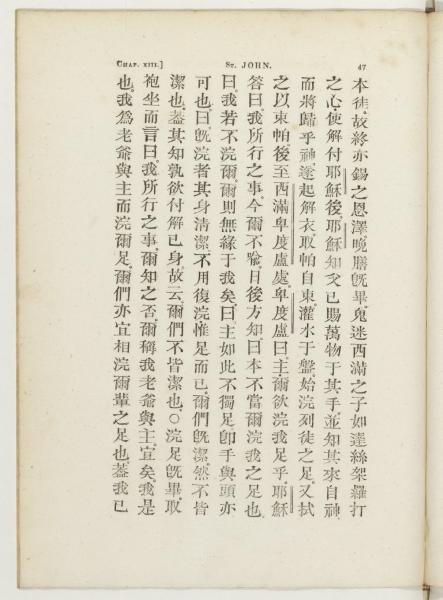 CHAP. XIII.]
ST. JOHN.
47
本徒故終亦錫之恩澤晚膳旣畢鬼迷西滿之子如達絲架羅打
之心使解付耶穌後耶穌知父已賜萬物于其手並知其來自神
而將歸乎神遂起解衣取帕自束灌水于盤始浣列徒之足又拭
之以束帕後至西滿卑度盧處卑度盧曰主爾欲浣我足乎耶穌
答曰我所行之事今爾不喻日後方知曰本不當爾浣我之足也
曰我若不浣爾爾則無緣于我矣曰主如此不獨足卽手與頭亦
可也曰旣浣者其身清潔不用復浣惟足而已爾們旣潔然不皆
潔也葢其知孰欲付解已身故云爾們不皆潔也○浣足旣畢取
袍坐而言曰我所行之事爾知之否爾稱我老爺與主宜矣我是
也我爲老爺與主而浣爾足爾們亦宜相浣爾輩之足也葢我已